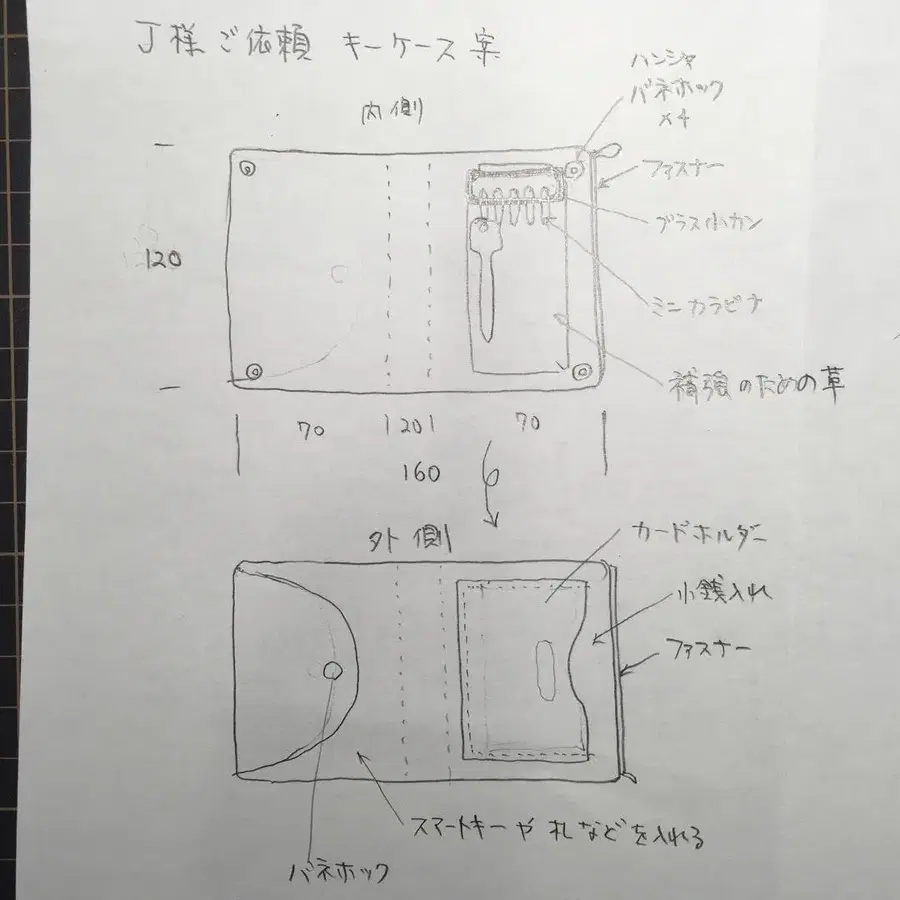 J様ご依頼 キーケース案
内側
ハンシャ
バネホック
×4
ファスナー
ブラス小カン
ミニカラビナ
補強のための革
120
70
20
70
160
外側
カードホルダー
小銭入れ
ファスナー
スマートキーや札などを入れる
バネホック